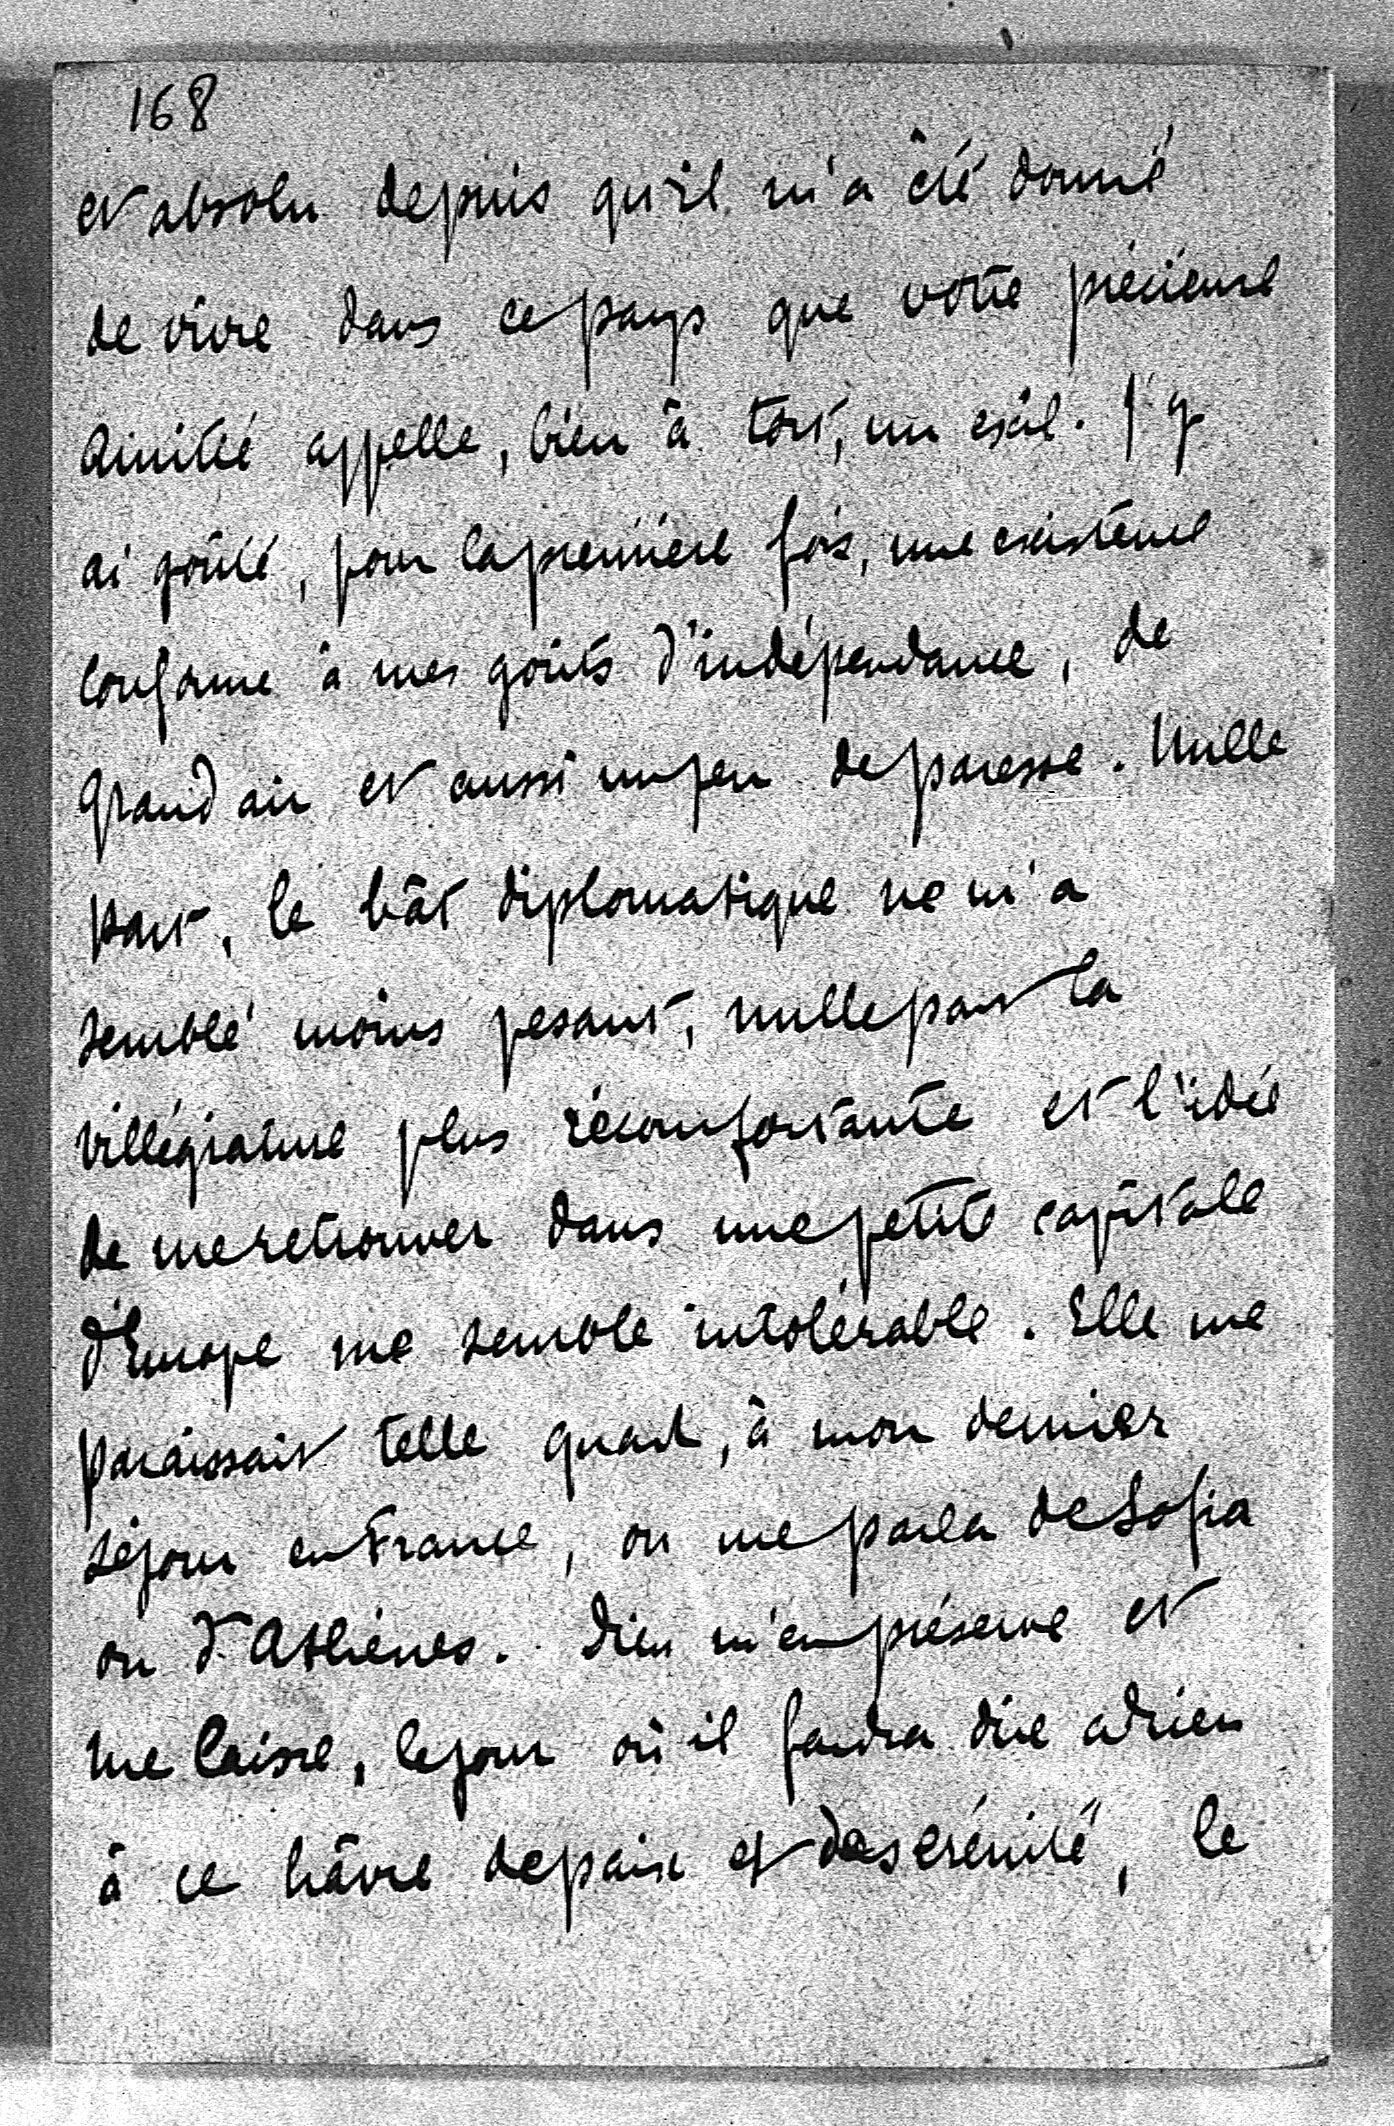 168
et absolu depuis qu'il m'a été donné
de vivre dans ce pays que votre précieuse
amitié appelle, bien à tort, un exil. J'y
ai goûté, pour la première fois, une existence
conforme à mes goûts d'indépendance, de
grand air et aussi un peu de paresse. Nulle
part, le bât diplomatique ne m'a
semblé moins pesant, nulle part la
villégiature plus réconfortante et l'idée
de me retrouver dans une petite capitale
d'Europe me semble intolérable. Elle me
paraissait telle quand, à mon dernier
séjour en France, on me parla de Sofia
ou d'Athènes. Dieu m'en préserve et
me laisse, le jour où il faudra dire adieu
à ce hâvre de paix et de sérénité, le